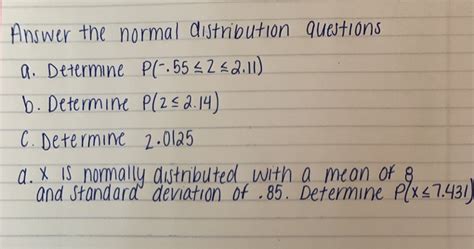 Answer the normal distribution questions
a. Determine P(-.55 ≤ Z ≤ 2.11)
b. Determine P(Z ≤ 2.14)
C. Determine Z.0125
d. X is normally distributed with a mean of 8
and standard deviation of .85. Determine P(X ≤ 7.431)